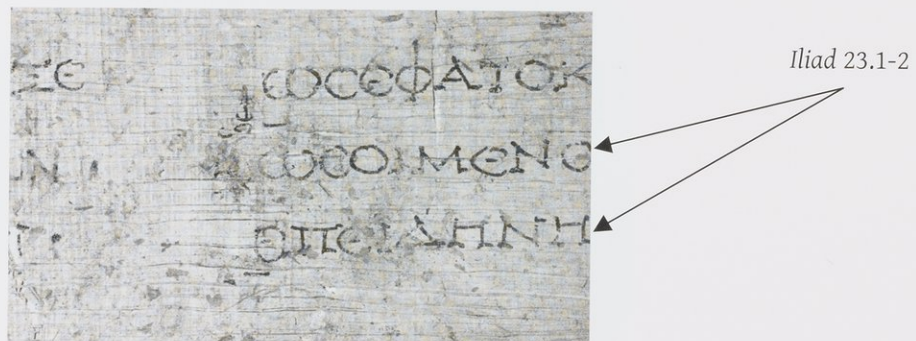 ΞΕ ΩϹΕΦΑΤΟΚ
Ν ΩϹΟΙΜΕΝϹ
ΕΠΕΙΔΗΝΗ
Iliad 23.1-2